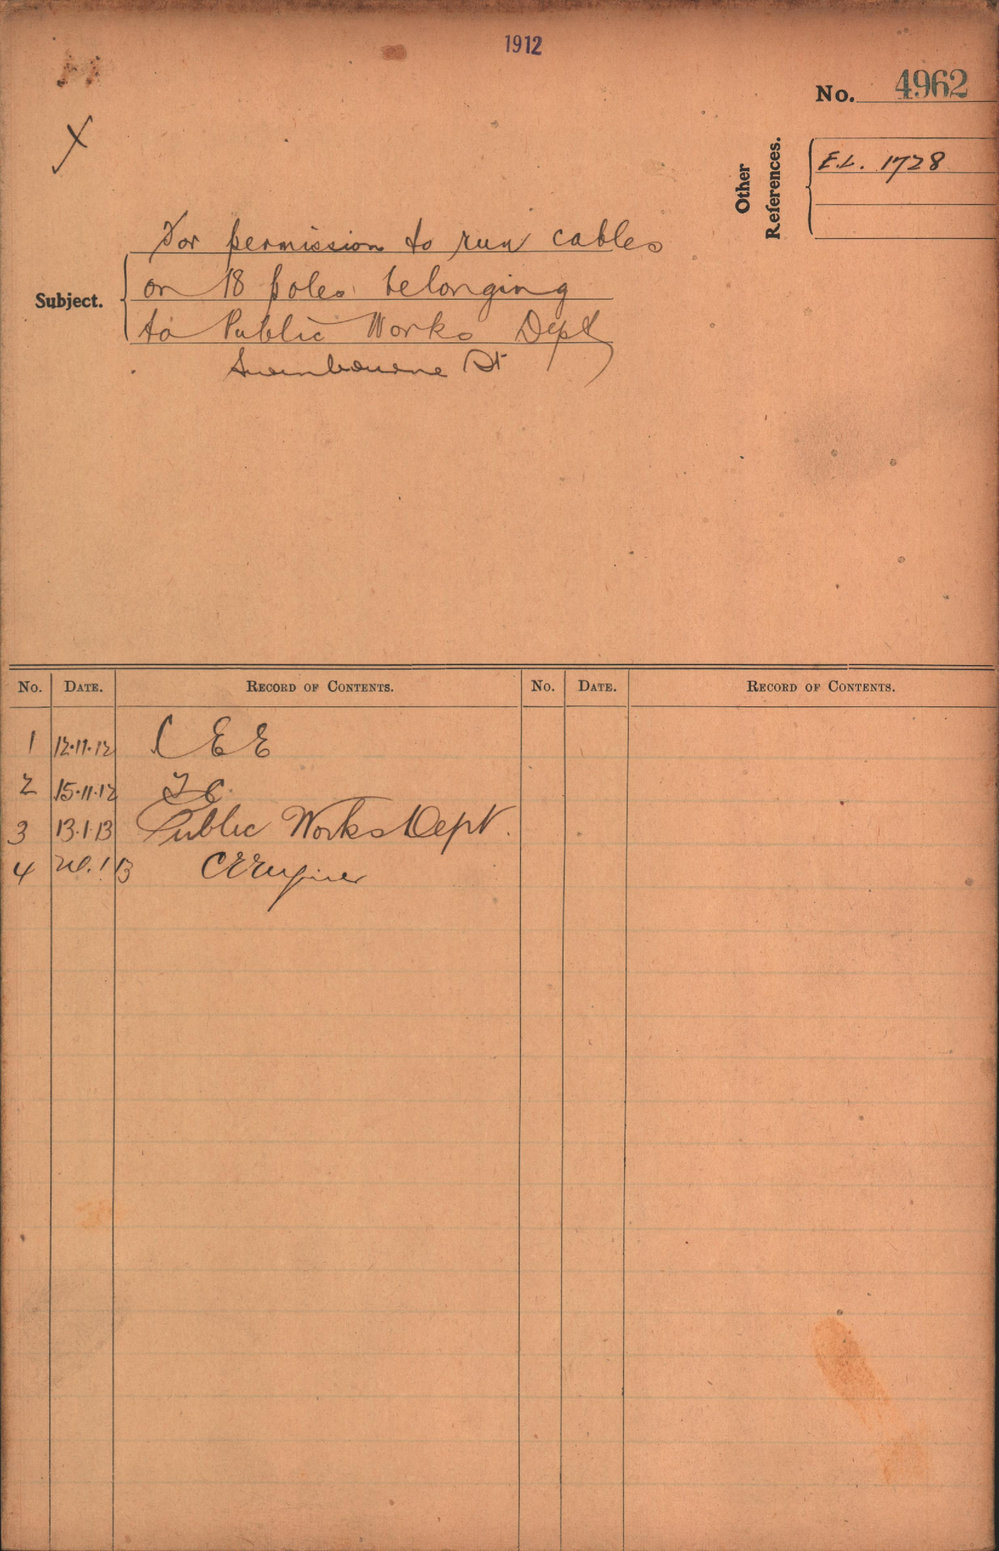 1912
No. 4962
X
Other References.
E.L. 1728
Subject.
For permission to run cables
on 18 poles belonging
to Public Works Dept
Swinbourne St
No. DATE. RECORD OF CONTENTS. No. DATE. RECORD OF CONTENTS.
1 12.11.12 C E E
2 15.11.12 T C.
3 13.1.13 Public Works Dept.
4 20.1.13